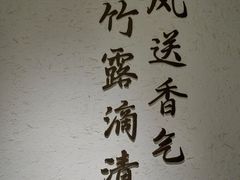 风送香气
竹露滴清